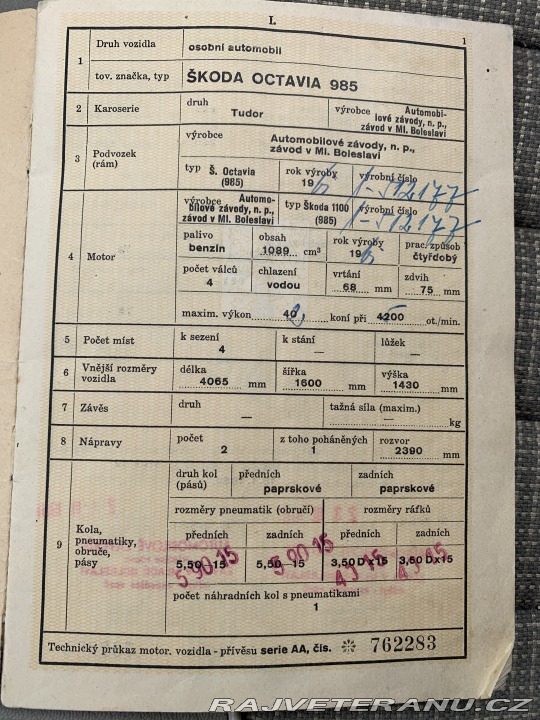 I.
1
1 Druh vozidla osobní automobil
tov. značka, typ ŠKODA OCTAVIA 985
2 Karoserie druh Tudor výrobce Automobi-
lové závody, n. p.,
závod v Ml. Boleslavi
3 Podvozek (rám) výrobce Automobilové závody, n. p.,
závod v Ml. Boleslavi
typ Š. Octavia rok výroby výrobní číslo
(985) 19 12177
4 Motor výrobce Automo-
bilové závody, n. p.,
závod v Ml. Boleslavi
typ Škoda 1100
(985)
výrobní číslo
12177
palivo obsah rok výroby prac. způsob
benzin 1089 cm³ 19 čtyřdobý
počet válců chlazení vrtání zdvih
4 vodou 68 mm 75 mm
maxim. výkon 40 koní při 4200 ot./min.
5 Počet míst k sezení k stání lůžek
4 — —
6 Vnější rozměry vozidla délka šířka výška
4065 mm 1600 mm 1430 mm
7 Závěs druh tažná síla (maxim.)
— — kg
8 Nápravy počet z toho poháněných rozvor
2 1 2390 mm
9 Kola, pneumatiky, obruče, pásy
druh kol (pásů) předních zadních
paprskové paprskové
rozměry pneumatik (obručí) rozměry ráfků
předních zadních předních zadních
5,50—15 5,50—15 3,50 D x 15 3,50 D x 15
5 90 15 5 90 15 4J 15 4J 15
počet náhradních kol s pneumatikami
1
Technický průkaz motor. vozidla - přívěsu serie AA, čís. 762283
RAJVETERANU.CZ